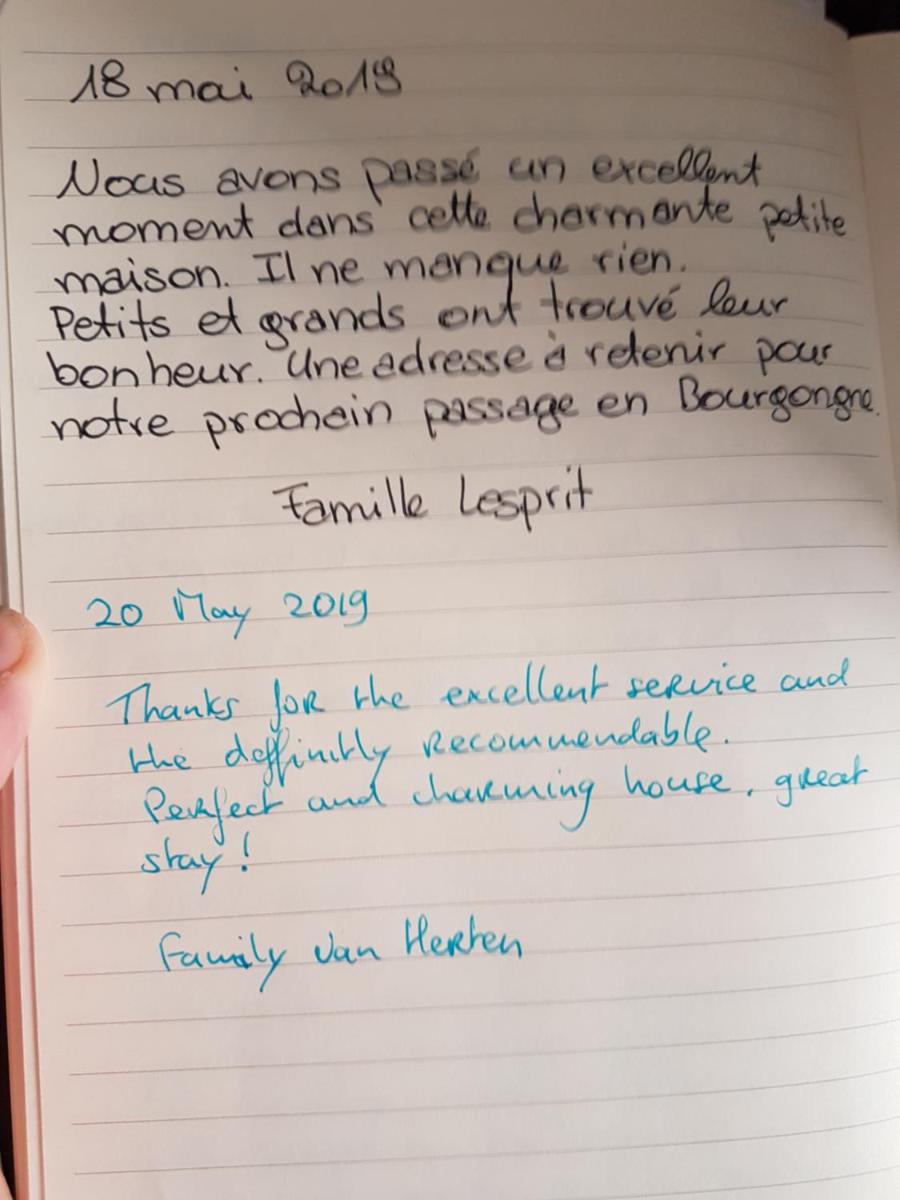 18 mai 2019
Nous avons passé un excellent
moment dans cette charmante petite
maison. Il ne manque rien.
Petits et grands ont trouvé leur
bonheur. Une adresse à retenir pour
notre prochain passage en Bourgongne.
Famille Lesprit
20 May 2019
Thanks for the excellent service and
the deffinitly recommendable.
Perfect and charming house, great
stay!
Family van Herten